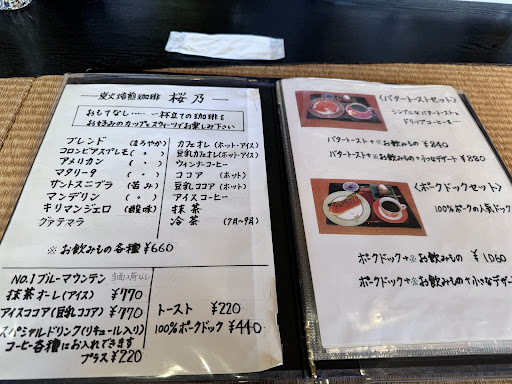 炭火焙煎珈琲 ― 桜乃 ―
おもてなし‥‥ 一杯立ての珈琲を
お好みのカップ&スウィーツでお楽しみ下さい
ブレンド (まろやか)
コロンビアスプレモ( 〃 )
アメリカン ( 〃 )
マタリータ ( 〃 )
サントスニブラ (苦み)
マンデリン ( 〃 )
キリマンジェロ (酸味)
グァテマラ
カフェオレ (ホット・アイス)
豆乳カフェオレ(ホット・アイス)
ウィンナーコーヒー
ココア (ホット)
豆乳ココア (ホット)
アイスコーヒー
抹茶
冷茶 (7月〜9月)
※お飲みもの各種 ¥660
NO.1ブルーマウンテン
抹茶オーレ(アイス) ¥770
アイスココア(豆乳ココア) ¥770
スペシャルドリンク(リキュール入り)
コーヒー各種にお入れできます
プラス¥220
トースト ¥220
100%ポークドック ¥440
〈バタートーストセット〉
シンプルなバタートーストを
ドリップコーヒー
バタートースト+※お飲みもの ¥840
バタートースト+※お飲みもの+小さなデザート ¥880
〈ポークドックセット〉
100%ポークの人気ドッ
ポークドック+※お飲みもの ¥1,060
ポークドック+※お飲みもの+小さなデザート